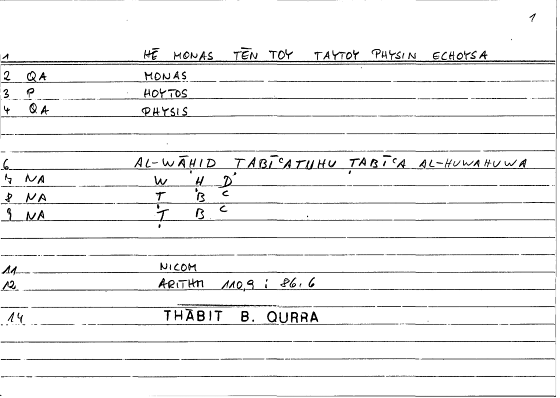 1
1 HĒ MONAS TĒN TOY TAYTOY PHYSIN ECHOYSA
2 QA MONAS
3 P HOYTOS
4 QA PHYSIS
6 AL-WĀḤID ṬABĪᶜATUHU ṬABĪᶜA AL-HUWAHUWA
7 NA W Ḥ D
8 NA Ṭ B ᶜ
9 NA Ṭ B ᶜ
11 NICOM
12 ARITHM 110,9 ; 86,6
14 THĀBIT B. QURRA